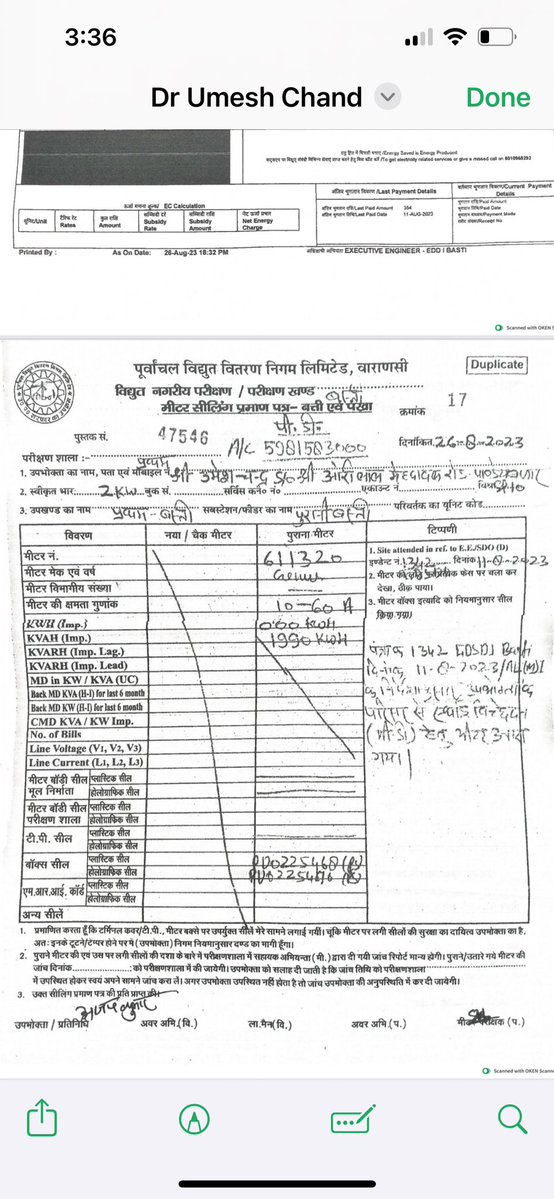 3:36
Dr Umesh Chand
Done
राष्ट्र हित में बिजली बचाए /Energy Saved is Energy Produced
To get electricity related services or give a missed call on 8010968292
अंतिम भुगतान विवरण /Last Payment Details
वर्तमान भुगतान विवरण/Current Payment Details
ऊर्जा गणना शुल्क/ EC Calculation
यूनिट/Unit
टैरिफ रेट Rates
कुल राशि Amount
सब्सिडी दरे Subsidy Rate
सब्सिडी राशि Subsidy Amount
नेट ऊर्जा प्रभार Net Energy Charge
अंतिम भुगतान राशि/Last Paid Amount 354
अंतिम भुगतान तिथि/Last Paid Date 11-AUG-2023
भुगतान राशि/Paid Amount
भुगतान तिथि/Paid Date
भुगतान माध्यम/Payment Mode
रसीद संख्या/Receipt No
Printed By :
As On Date: 26-Aug-23 18:32 PM
अधिशासी अभियंता EXECUTIVE ENGINEER - EDD I BASTI
Scanned with OKEN S
पूर्वांचल विद्युत वितरण निगम लिमिटेड, वाराणसी
Duplicate
विद्युत नगरीय परीक्षण / परीक्षण खण्ड बस्ती
मीटर सीलिंग प्रमाण पत्र- बत्ती एवं पंखा
क्रमांक 17
पी.डी.
पुस्तक सं. 47546
A/C 5981583000
दिनांकित 26-8-2023
परीक्षण शाला :- प्रथम
1. उपभोक्ता का नाम, पता एवं मोबाइल नं. श्री उमेश चन्द्र S/o श्री
2. स्वीकृत भार 2KW बुक सं. सर्विस कने० नं० एकाउन्ट नं.
3. उपखण्ड का नाम प्रथम-बस्ती सबस्टेशन/फीडर का नाम पुरानी बस्ती परिवर्तक का यूनिट कोड
विवरण
नया / चैक मीटर
पुराना मीटर
टिप्पणी
मीटर नं. 611320
मीटर मेक एवं वर्ष Genus
मीटर विभागीय संख्या
मीटर की क्षमता गुणांक 10-60 A
KWH (Imp.) 000 KWH
KVAH (Imp.) 1990 KWH
KVARH (Imp. Lag.)
KVARH (Imp. Lead)
MD in KW / KVA (UC)
Back MD KVA (H-I) for last 6 month
Back MD KW (H-I) for last 6 month
CMD KVA / KW Imp.
No. of Bills
Line Voltage (V1, V2, V3)
Line Current (L1, L2, L3)
मीटर बॉडी सील प्लास्टिक सील
मूल निर्माता होलोग्राफिक सील
मीटर बॉडी सील प्लास्टिक सील
परीक्षण शाला होलोग्राफिक सील
टी.पी. सील प्लास्टिक सील
होलोग्राफिक सील
बॉक्स सील प्लास्टिक सील
होलोग्राफिक सील
एम.आर.आई. कॉर्ड प्लास्टिक सील
होलोग्राफिक सील
अन्य सीलें
1. Site attended in ref. to E.E./SDO (D)
इण्डेन्ट नं. 1342 दिनांक 11-8-2023
2. मीटर को प्रत्येक फेस पर चला कर
देखा, ठीक पाया।
3. मीटर बॉक्स इत्यादि को नियमानुसार सील
किया गया।
पत्रांक 1342 EDSDI Basti
दिनांक 11-8-2023
(पी.डी) हेतु मीटर उतारा
गया।
1. प्रमाणित करता हूँ कि टर्मिनल कवर/टी.पी., मीटर बक्से पर उपर्युक्त सीलें मेरे सामने लगाई गयी। चूंकि मीटर पर लगी सीलों की सुरक्षा का दायित्व उपभोक्ता का है,
अतः इनके टूटने/टेम्पर होने पर मै ( उपभोक्ता ) निगम नियमानुसार दण्ड का भागी हूँगा।
2. पुराने मीटर की एवं उस पर लगी सीलों की दशा के बारे में परीक्षणशाला में सहायक अभियन्ता (मी.) द्वारा दी गयी जांच रिपोर्ट मान्य होगी। पुराने/उतारे गये मीटर की
जांच दिनांक को परीक्षणशाला में की जायेगी। उपभोक्ता को सलाह दी जाती है कि जांच तिथि को परीक्षणशाला
में उपस्थित होकर स्वयं अपने सामने जांच करा लें। अगर उपभोक्ता उपस्थित नहीं होता है तो जांच उपभोक्ता की अनुपस्थिति में कर दी जायेगी।
3. उक्त सीलिंग प्रमाण पत्र की प्रति प्राप्त की।
उपभोक्ता / प्रतिनिधि
अवर अभि.(वि.)
ला.मैन(वि.)
अवर अभि.(प.)
मीटर परीक्षक (प.)
Scanned with OKEN Scann